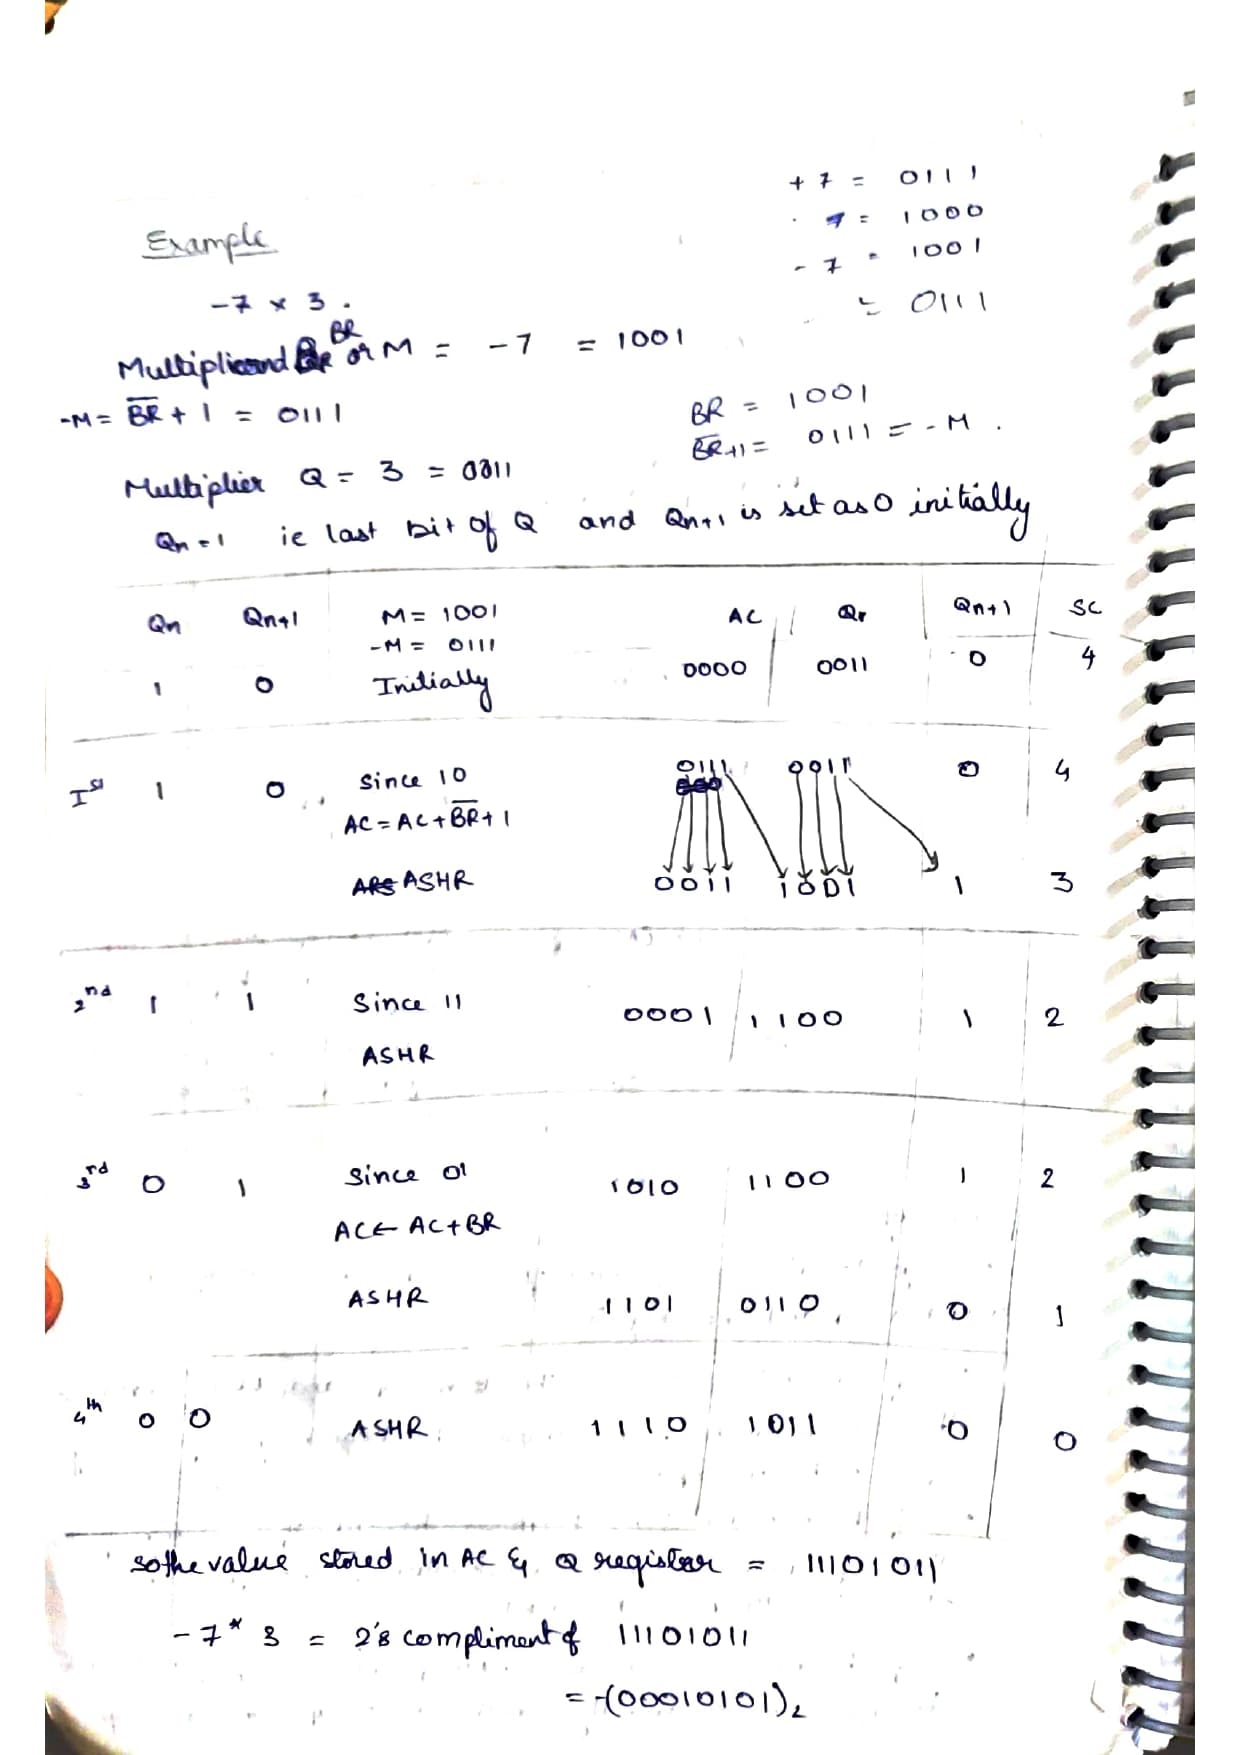 + 7 = 0111
7 = 1000
- 7 = 1001
= 0111
Example
-7 × 3 .
Multiplicand BR or M = -7 = 1001
-M = B̅R̅ + 1 = 0111
BR = 1001
B̅R̅+1 = 0111 = -M .
Multiplier Q = 3 = 0011
Qn = 1 ie last bit of Q and Qn+1 is set as 0 initially
Qn Qn+1 M = 1001 AC Qr Qn+1 SC
-M = 0111
1 0 Initially 0000 0011 0 4
Ist 1 0 Since 10 0111 0011 0 4
AC = AC + B̅R̅ + 1
ASHR 0011 1001 1 3
2nd 1 1 Since 11 0001 1100 1 2
ASHR
3rd 0 1 Since 01 1010 1100 1 2
AC ← AC + BR
ASHR 1101 0110 0 1
4th 0 0 ASHR 1110 1011 0 0
so the value stored in AC & Q registar = 11101011
-7 * 3 = 2's compliment of 11101011
= -(00010101)₂